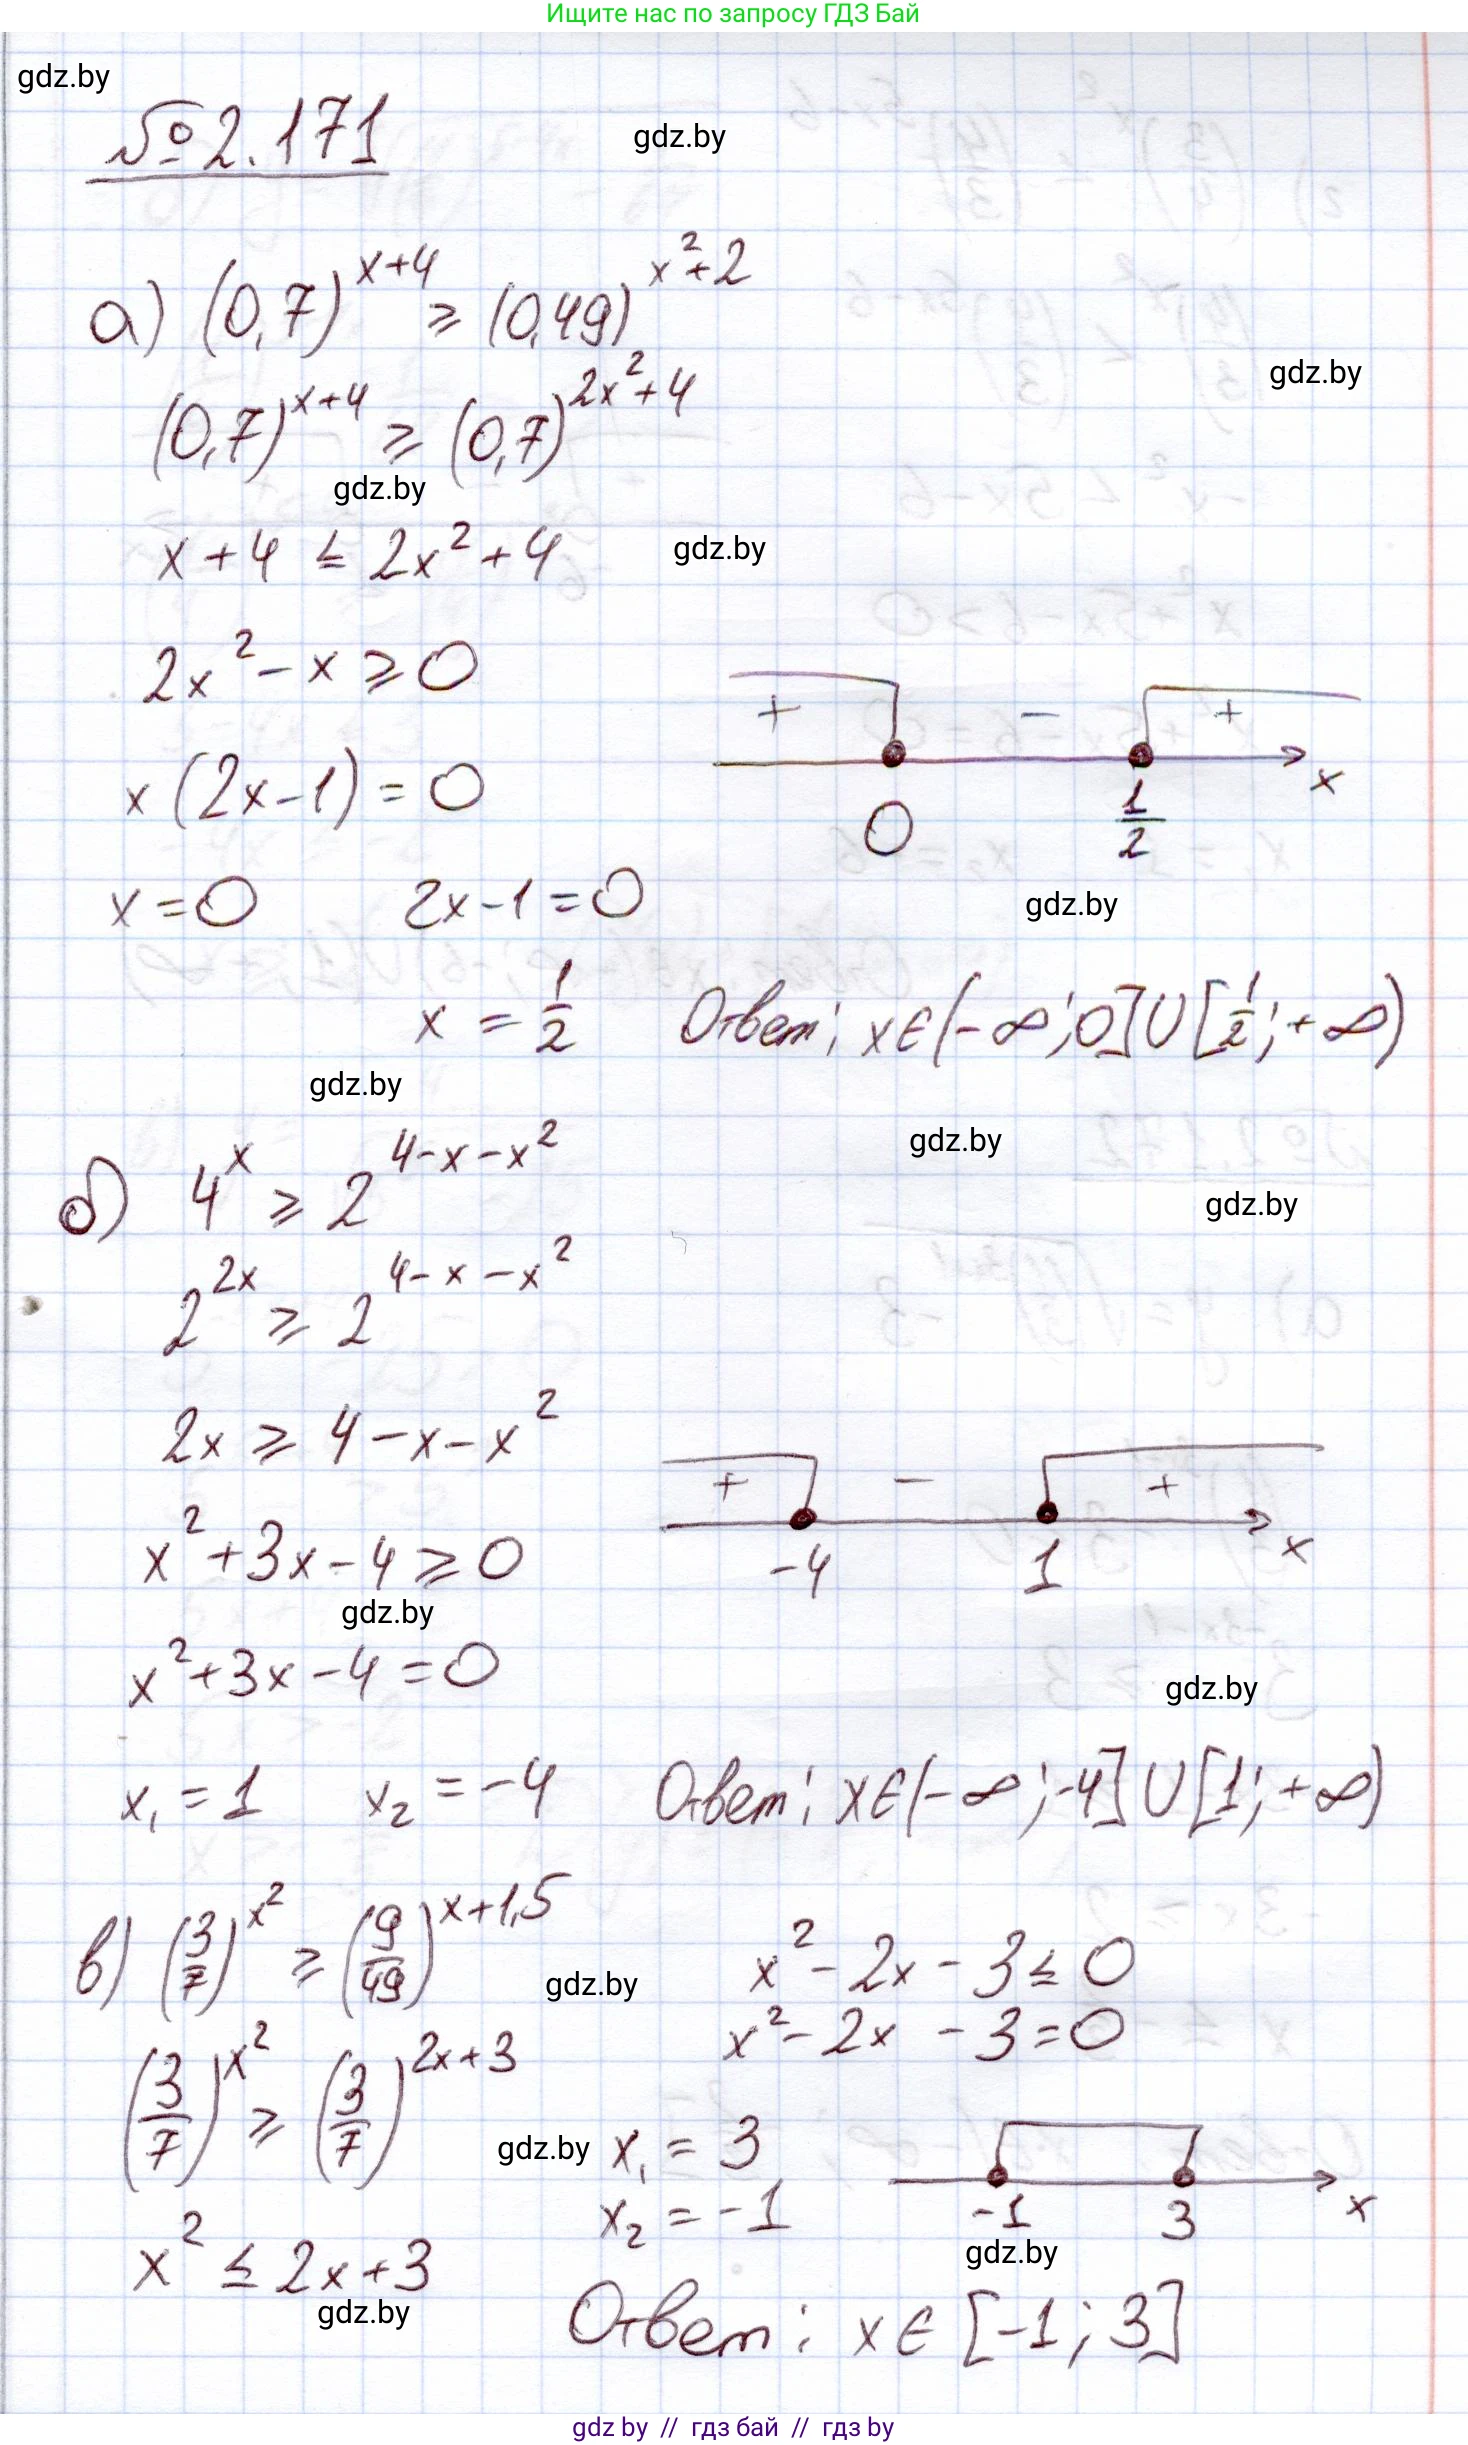 Ищите нас по запросу ГДЗ Бай
gdz.by
№2.171
gdz.by
а) (0,7)^(x+4) ≥ (0,49)^(x²+2)
gdz.by
(0,7)^(x+4) ≥ (0,7)^(2x²+4)
gdz.by
x+4 ≤ 2x²+4
gdz.by
2x²-x ≥ 0
+ - +
x(2x-1) = 0
x
0 1/2
x=0 2x-1=0
gdz.by
x = 1/2 Ответ: x∈(-∞;0]∪[1/2;+∞)
gdz.by
gdz.by
б) 4^x ≥ 2^(4-x-x²)
gdz.by
2^(2x) ≥ 2^(4-x-x²)
2x ≥ 4-x-x²
+ - +
x²+3x-4 ≥ 0
-4 1 x
gdz.by
x²+3x-4=0
gdz.by
x₁=1 x₂=-4 Ответ: x∈(-∞;-4]∪[1;+∞)
в) (3/7)^(x²) ≥ (9/49)^(x+1,5)
gdz.by
(3/7)^(x²) ≥ (3/7)^(2x+3)
x² ≤ 2x+3
gdz.by
x²-2x-3 ≤ 0
x²-2x-3=0
gdz.by
x₁ = 3
x₂ = -1
-1 3 x
gdz.by
Ответ: x∈[-1;3]
gdz by // гдз бай // гдз by